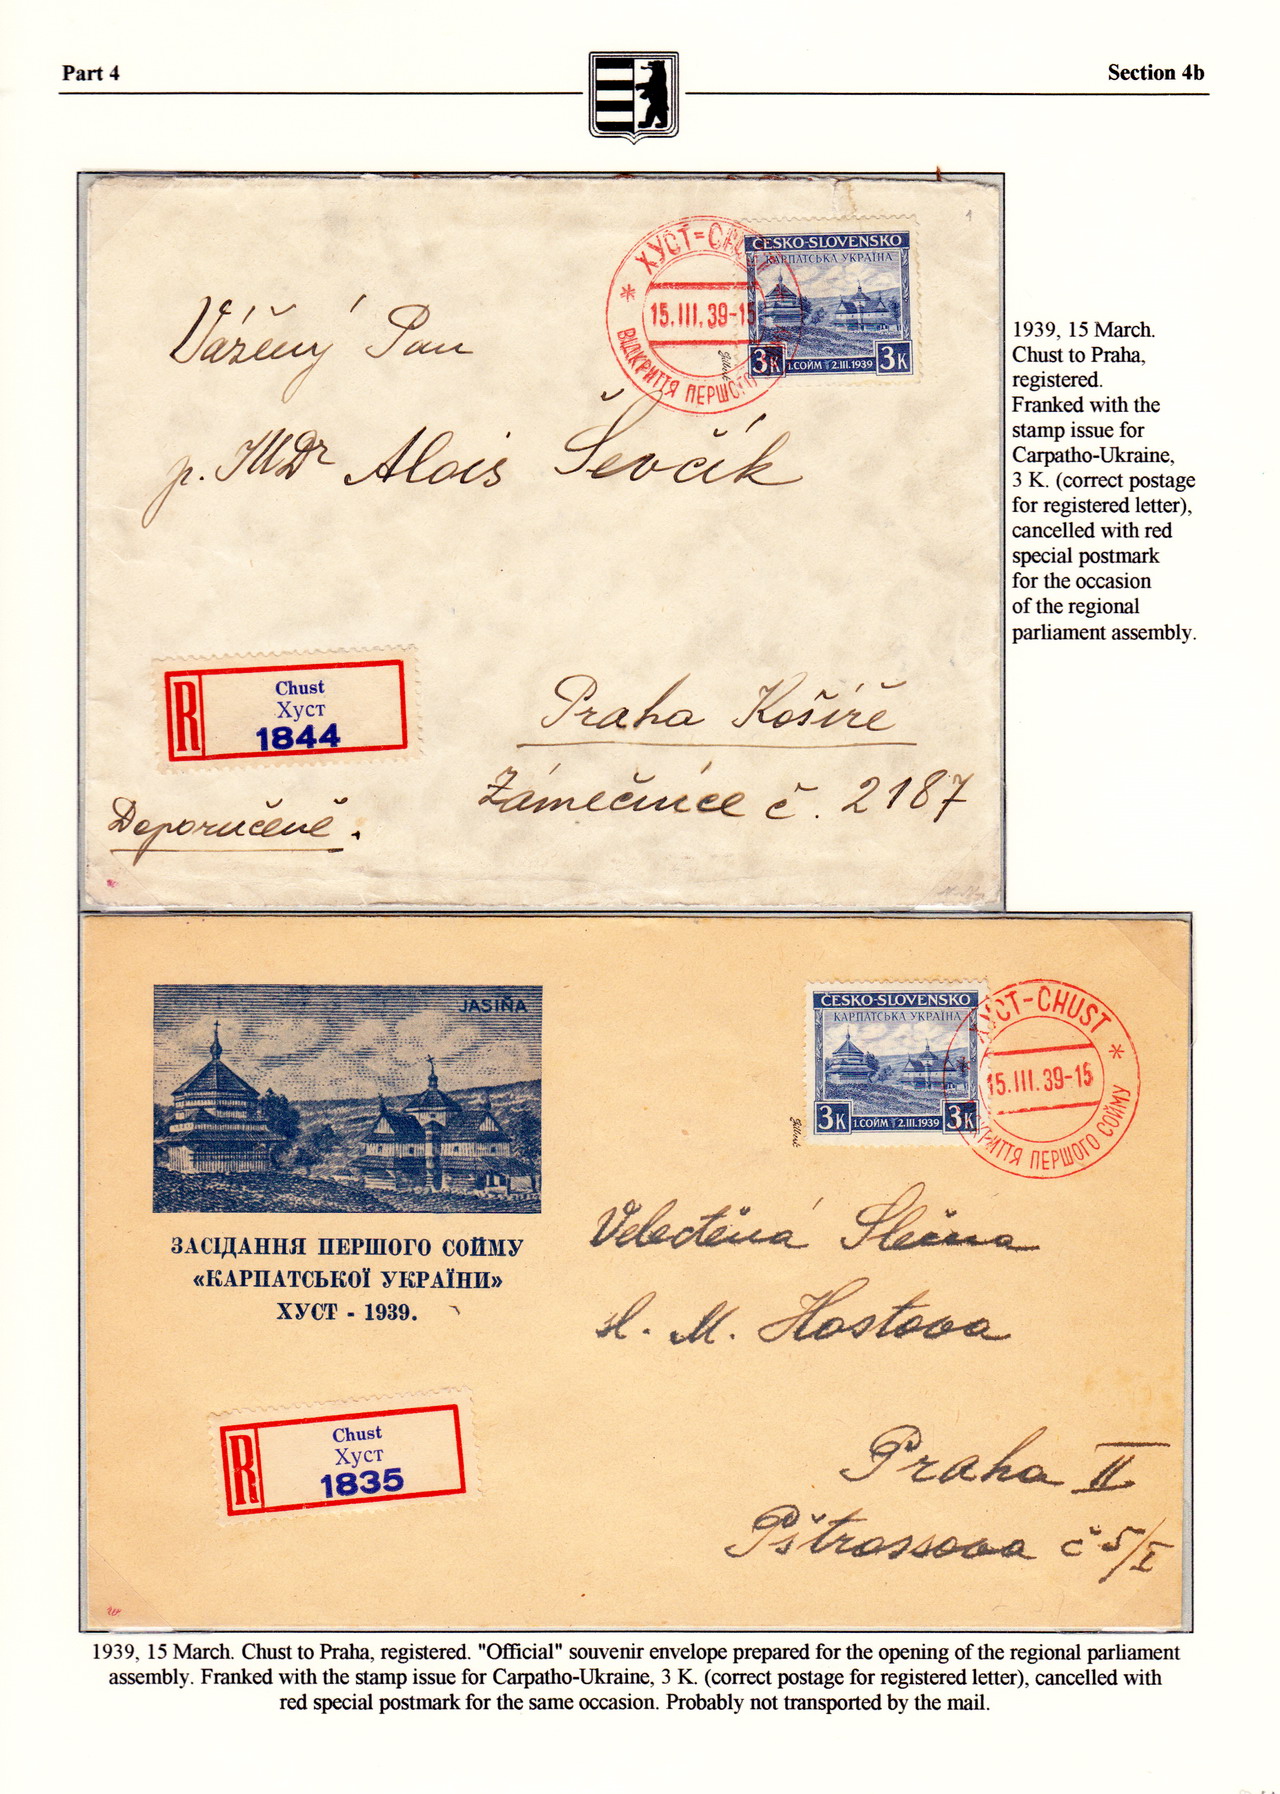 Part 4
Section 4b
ХУСТ=CHUST
15.III.39-15
ВІДКРИТТЯ ПЕРШОГО
ČESKO-SLOVENSKO
КАРПАТСЬКА УКРАЇНА
3K I.СОЙМ 2.III.1939 3K
Vážený Pan
p. MUDr Alois Ševčík
R
Chust
Хуст
1844
Praha Košíře
Zámečnice č. 2187
Doporučeně.
1939, 15 March.
Chust to Praha,
registered.
Franked with the
stamp issue for
Carpatho-Ukraine,
3 K. (correct postage
for registered letter),
cancelled with red
special postmark
for the occasion
of the regional
parliament assembly.
JASIŇA
ЗАСІДАННЯ ПЕРШОГО СОЙМУ
«КАРПАТСЬКОЇ УКРАЇНИ»
ХУСТ - 1939.
ČESKO-SLOVENSKO
КАРПАТСЬКА УКРАЇНА
3K I.СОЙМ 2.III.1939 3K
ХУСТ-CHUST
15.III.39-15
ПЕРШОГО СОЙМУ
Velectěná Slečna
sl. M. Hostova
R
Chust
Хуст
1835
Praha II
Pštrossova č 5/I
1939, 15 March. Chust to Praha, registered. "Official" souvenir envelope prepared for the opening of the regional parliament
assembly. Franked with the stamp issue for Carpatho-Ukraine, 3 K. (correct postage for registered letter), cancelled with
red special postmark for the same occasion. Probably not transported by the mail.